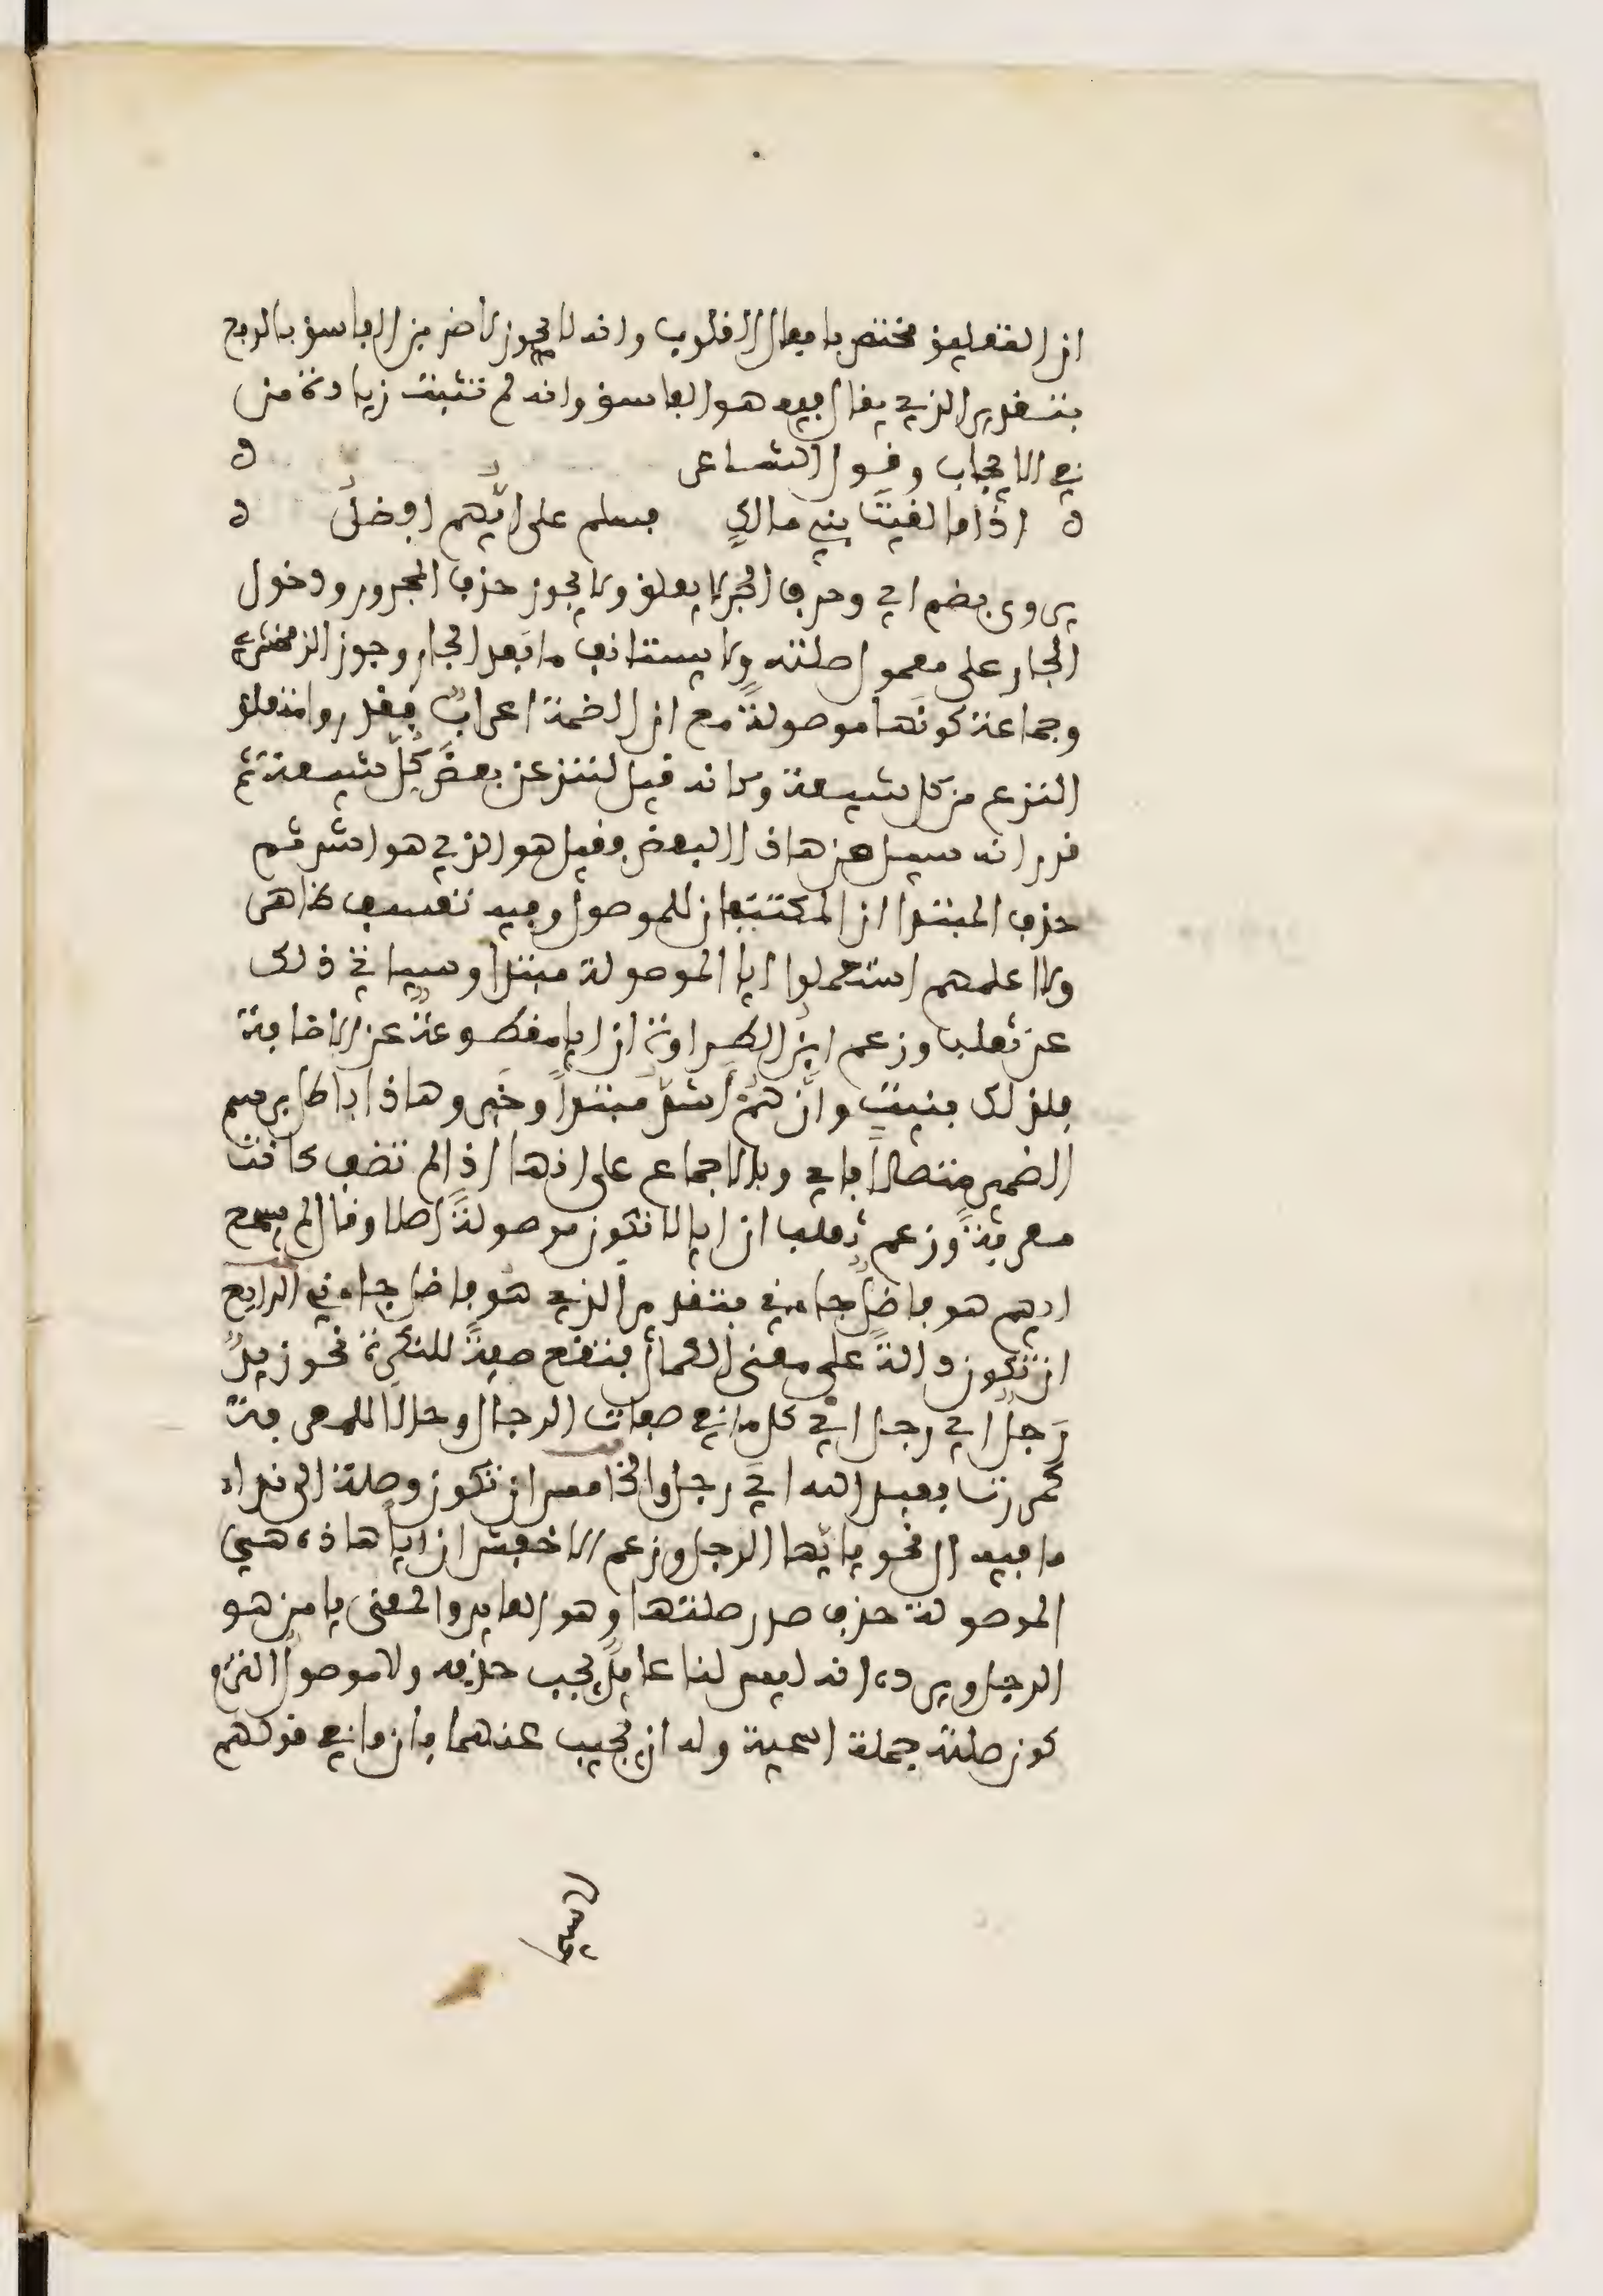 ان التعليق مختص بافعال القلوب وانه لا يجوز لاضربن الفاسق بالرفع
بتقدير الذي يقال فيه هو الفاسق وانه لم تثبت زيادة من
في الايجاب وقول الشاعر ه
ه اذا ما لقيتَ بني مالكٍ فسلم على ايُّهم افضلُ ه
يروى بضم اي وحرف الجر لا يعلق ولا يجوز حذف المجرور ودخول
الجار على معمول صلته ولا يستانف ما بعد الجار وجوز الزمخشري
وجماعة كونها موصولةً مع ان الضمة اعرابٌ فقدروا متعلق
النزع من كل شيعة وكانه قيل لننزعن بعضَ كلِّ شيعة ثم
قدر انه سيل من هاذا البعض فقيل هو الذي هو اشد ثم
حذف المبتدا ان المكتنفان للموصول وفيه تعسف ظاهر
ولا اعلمهم استعملوا ايا الموصولة مبتدا وسياتي ذلك
عن ثعلب وزعم ابنُ الطراوة ان ايا مقطوعةٌ عن الاضافة
فلذلك بنيت وانَّ همْ اشدُّ مبتدأً وخبر وهاذا باطل برسم
الضمير متصلاً باي وبالاجماع على انها اذا لم تضف كانت
معربةً وزعم ثعلب ان ايا لا تكون موصولةً اصلا وقال لم يسمع
ايهم هو فاضلٌ جاءني بتقدير الذي هو فاضل جاءني الرابع
ان تكون دالةً على معنى الكمال فتقع صفةً للنكرة نحو زيدٌ
رَجلٌ اي رجل اي كامل في صفات الرجال وحالاً للمعرفة
كمررت بعبد الله ايَّ رجل والخامس ان تكون وصلة الى نداء
ما فيه ال نحو يا ايُّها الرجل وزعم الاخفش ان اياً هاذه هي
الموصولة حذف صدر صلتها وهو العايد والمعنى يا من هو
الرجل ويرده انه ليس لنا عايدٌ يجب حذفه ولا موصول التزم
كون صلته جملة اسمية وله ان يجيب عنهما بان ما في قولهم